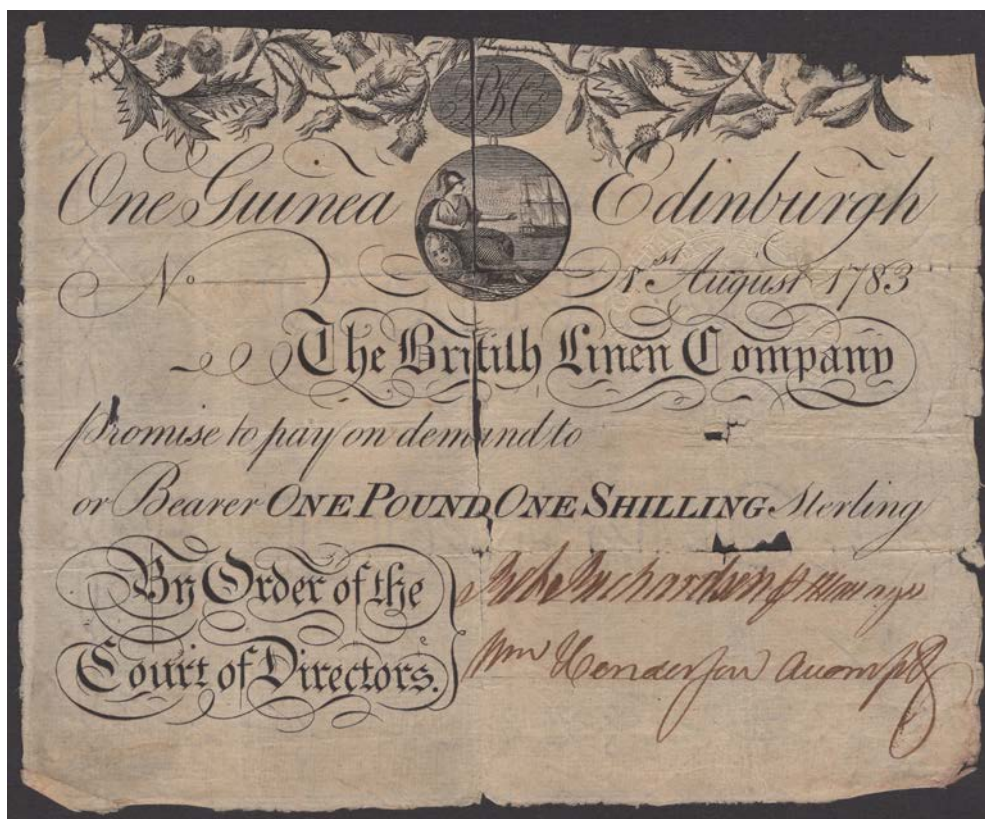 BLC
One Guinea Edinburgh
No 1st August 1783
The British Linen Company
Promise to pay on demand to
or Bearer ONE POUND ONE SHILLING Sterling
By Order of the
Court of Directors.
Richardson Manager
Wm Henderson Accompt